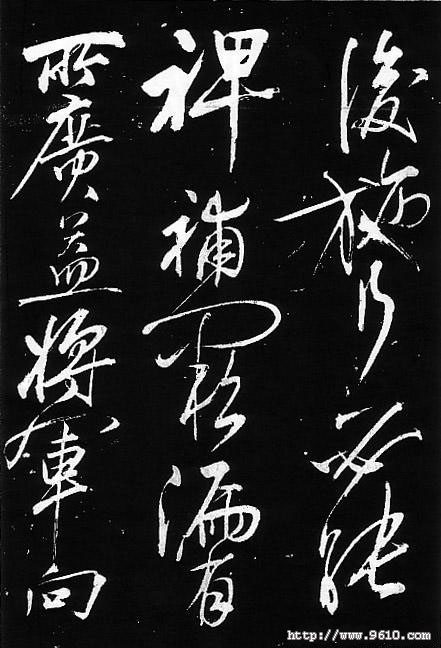 後施行必能
裨補闕漏有
所廣益將軍向
http://www.9610.com